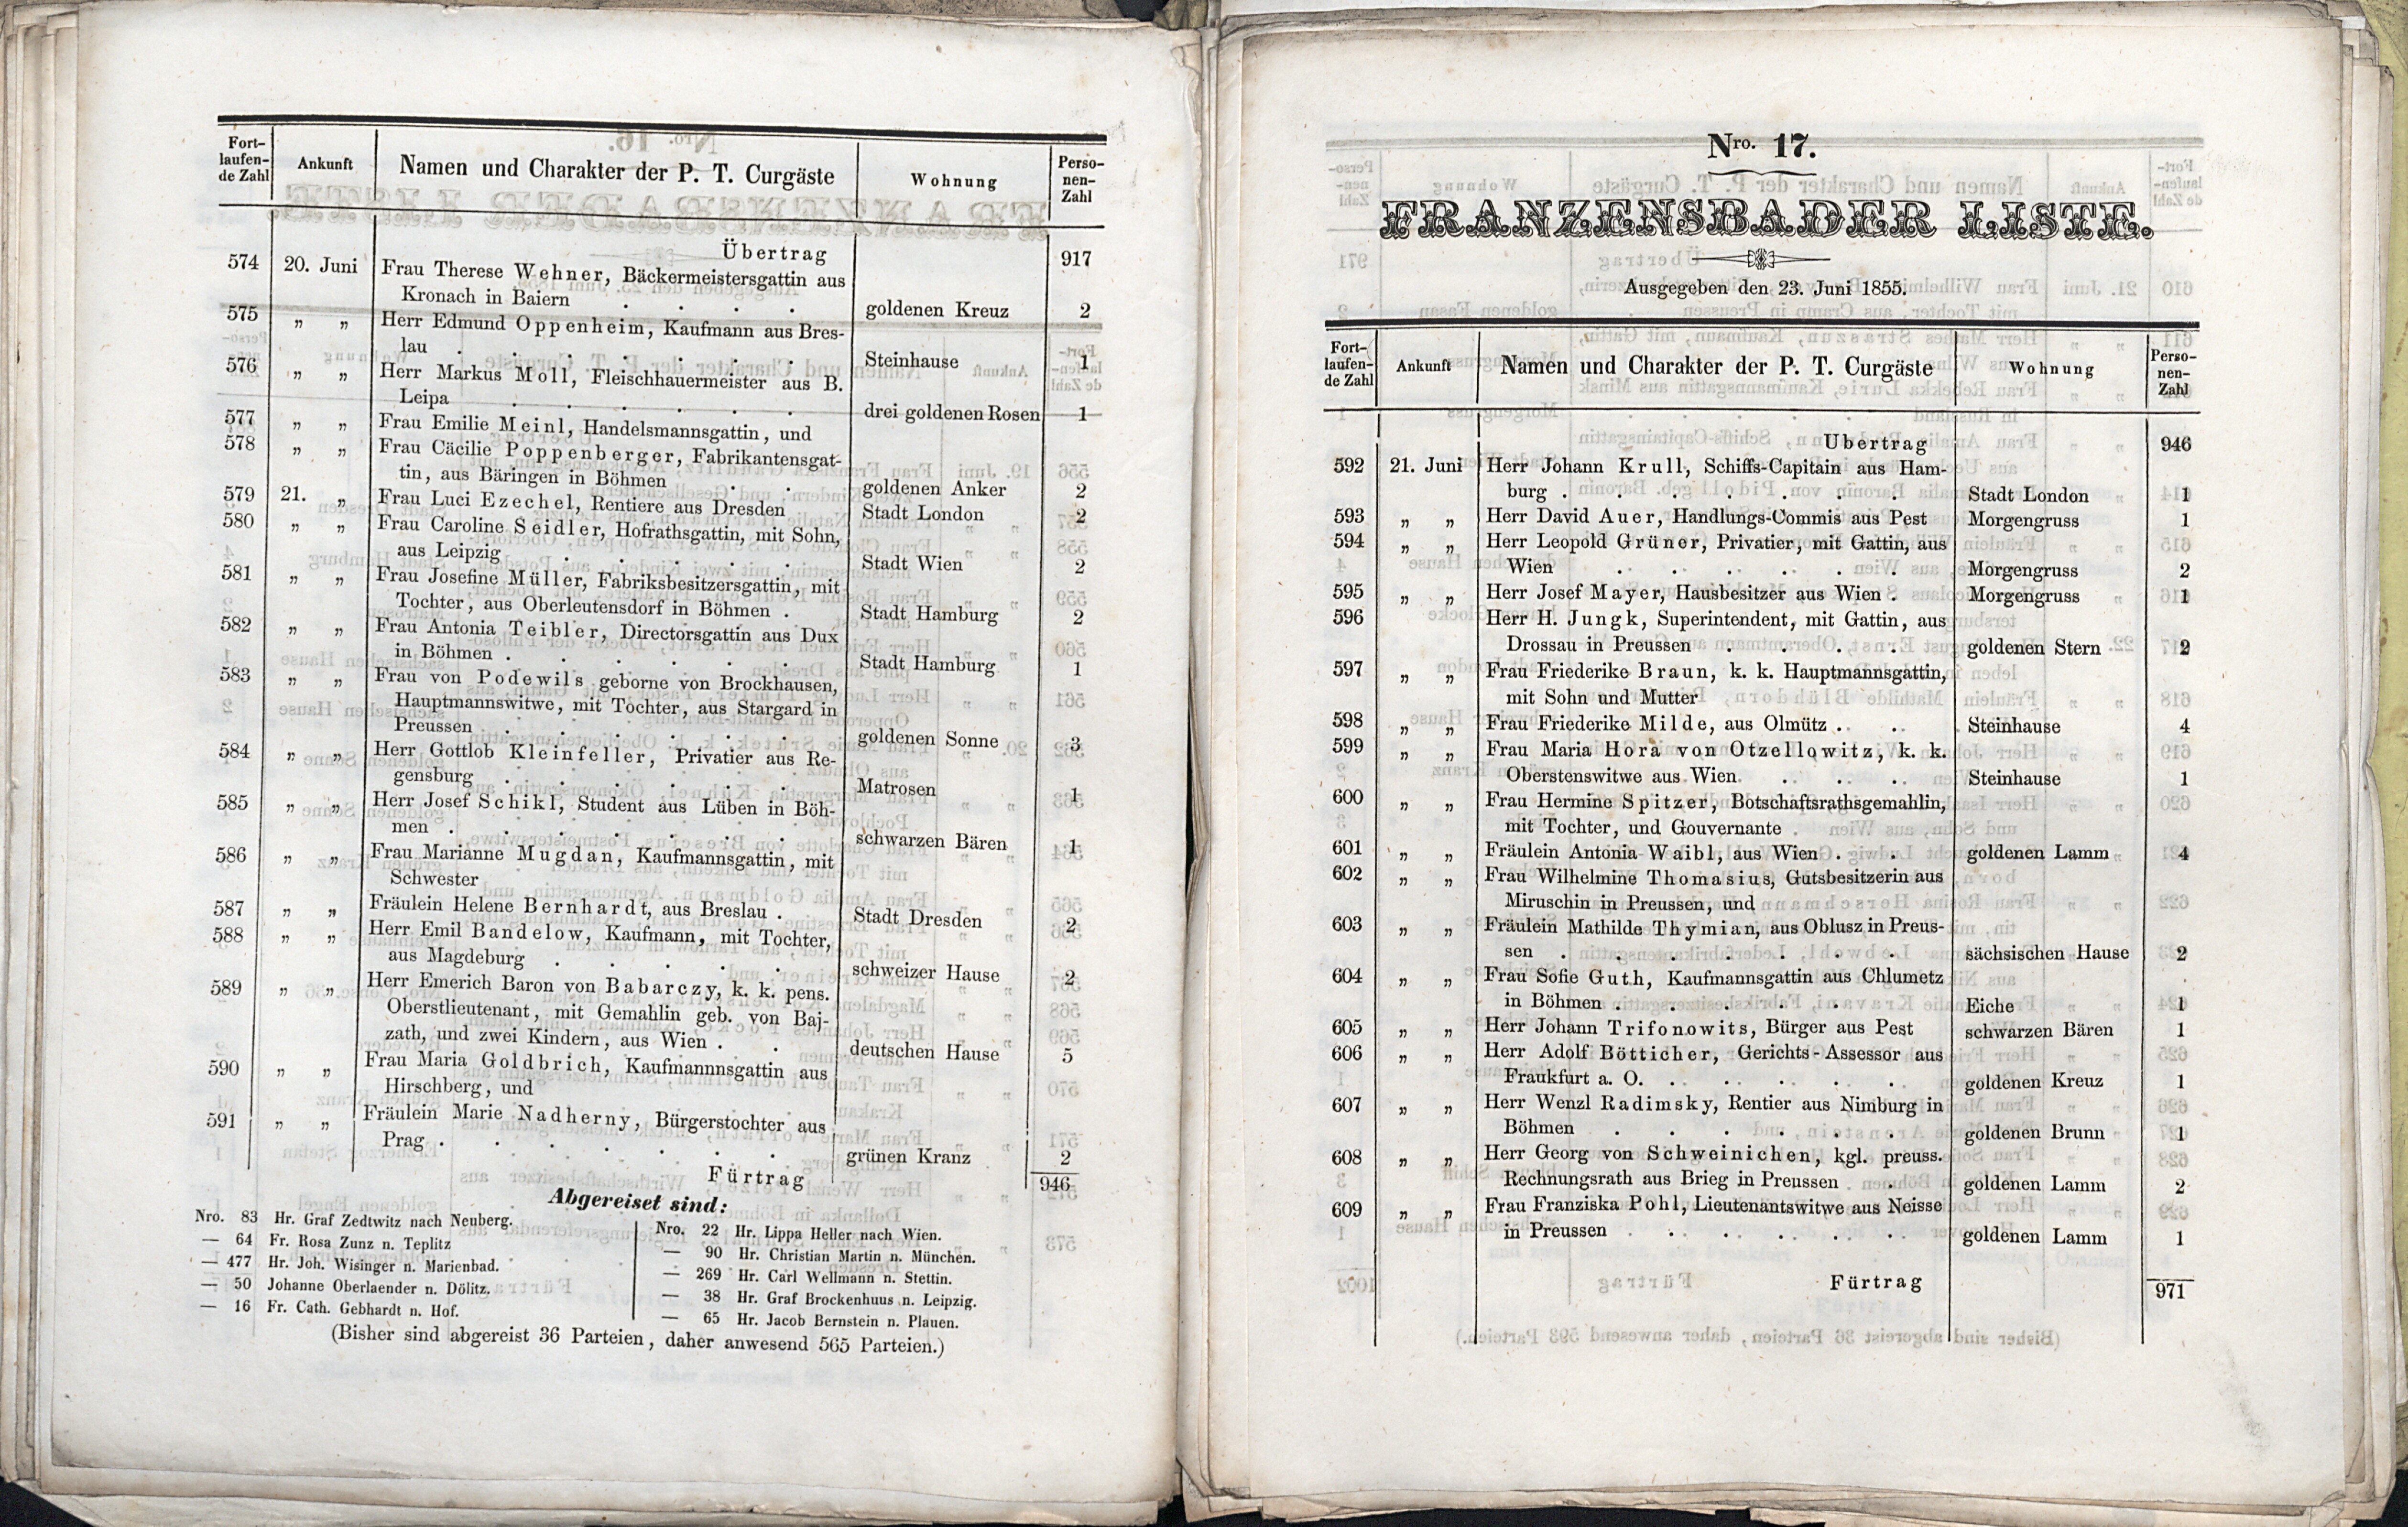 Fort-
laufen-
de Zahl
Ankunft
Namen und Charakter der P. T. Curgäste
Wohnung
Perso-
nen-
Zahl
Übertrag 917
574 20. Juni Frau Therese Wehner, Bäckermeistersgattin aus
Kronach in Baiern . . . goldenen Kreuz 2
575 „ „ Herr Edmund Oppenheim, Kaufmann aus Bres-
lau . . . . . . . Steinhause 1
576 „ „ Herr Markus Moll, Fleischhauermeister aus B.
Leipa . . . . . . drei goldenen Rosen 1
577 „ „ Frau Emilie Meinl, Handelsmannsgattin, und
578 „ „ Frau Cäcilie Poppenberger, Fabrikantensgat-
tin, aus Bäringen in Böhmen . . goldenen Anker 2
579 21. „ Frau Luci Ezechel, Rentiere aus Dresden Stadt London 2
580 „ „ Frau Caroline Seidler, Hofrathsgattin, mit Sohn,
aus Leipzig . . . . . Stadt Wien 2
581 „ „ Frau Josefine Müller, Fabriksbesitzersgattin, mit
Tochter, aus Oberleutensdorf in Böhmen . Stadt Hamburg 2
582 „ „ Frau Antonia Teibler, Directorsgattin aus Dux
in Böhmen . . . . . . Stadt Hamburg 1
583 „ „ Frau von Podewils geborne von Brockhausen,
Hauptmannswitwe, mit Tochter, aus Stargard in
Preussen . . . . . . goldenen Sonne 3
584 „ „ Herr Gottlob Kleinfeller, Privatier aus Re-
gensburg . . . . . . Matrosen 1
585 „ „ Herr Josef Schikl, Student aus Lüben in Böh-
men . . . . . . . schwarzen Bären 1
586 „ „ Frau Marianne Mugdan, Kaufmannsgattin, mit
Schwester
587 „ „ Fräulein Helene Bernhardt, aus Breslau . Stadt Dresden 2
588 „ „ Herr Emil Bandelow, Kaufmann, mit Tochter,
aus Magdeburg . . . . . schweizer Hause 2
589 „ „ Herr Emerich Baron von Babarczy, k. k. pens.
Oberstlieutenant, mit Gemahlin geb. von Baj-
zath, und zwei Kindern, aus Wien . . deutschen Hause 5
590 „ „ Frau Maria Goldbrich, Kaufmannnsgattin aus
Hirschberg, und
591 „ „ Fräulein Marie Nadherny, Bürgerstochter aus
Prag . . . . . . . grünen Kranz 2
Fürtrag 946
Abgereiset sind:
Nro. 83 Hr. Graf Zedtwitz nach Neuberg.
— 64 Fr. Rosa Zunz n. Teplitz
— 477 Hr. Joh. Wisinger n. Marienbad.
— 50 Johanne Oberlaender n. Dölitz.
— 16 Fr. Cath. Gebhardt n. Hof.
Nro. 22 Hr. Lippa Heller nach Wien.
— 90 Hr. Christian Martin n. München.
— 269 Hr. Carl Wellmann n. Stettin.
— 38 Hr. Graf Brockenhuus n. Leipzig.
— 65 Hr. Jacob Bernstein n. Plauen.
(Bisher sind abgereist 36 Parteien, daher anwesend 565 Parteien.)
Nro. 17.
FRANZENSBADER LISTE.
Ausgegeben den 23. Juni 1855.
Fort-
laufen-
de Zahl
Ankunft
Namen und Charakter der P. T. Curgäste
Wohnung
Perso-
nen-
Zahl
Übertrag 946
592 21. Juni Herr Johann Krull, Schiffs-Capitain aus Ham-
burg . . . . . . . Stadt London 1
593 „ „ Herr David Auer, Handlungs-Commis aus Pest Morgengruss 1
594 „ „ Herr Leopold Grüner, Privatier, mit Gattin, aus
Wien . . . . . . Morgengruss 2
595 „ „ Herr Josef Mayer, Hausbesitzer aus Wien . Morgengruss 1
596 Herr H. Jungk, Superintendent, mit Gattin, aus
Drossau in Preussen . . . . goldenen Stern 2
597 „ „ Frau Friederike Braun, k. k. Hauptmannsgattin,
mit Sohn und Mutter
598 „ „ Frau Friederike Milde, aus Olmütz . . . Steinhause 4
599 „ „ Frau Maria Hora von Otzellowitz, k. k.
Oberstenswitwe aus Wien . . . Steinhause 1
600 „ „ Frau Hermine Spitzer, Botschaftsrathsgemahlin,
mit Tochter, und Gouvernante
601 „ „ Fräulein Antonia Waibl, aus Wien . . goldenen Lamm 4
602 „ „ Frau Wilhelmine Thomasius, Gutsbesitzerin aus
Miruschin in Preussen, und
603 „ „ Fräulein Mathilde Thymian, aus Oblusz in Preus-
sen . . . . . . . sächsischen Hause 2
604 „ „ Frau Sofie Guth, Kaufmannsgattin aus Chlumetz
in Böhmen . . . . . . Eiche 1
605 „ „ Herr Johann Trifonowits, Bürger aus Pest schwarzen Bären 1
606 „ „ Herr Adolf Bötticher, Gerichts-Assessor aus
Fraukfurt a. O. . . . . . goldenen Kreuz 1
607 „ „ Herr Wenzl Radimsky, Rentier aus Nimburg in
Böhmen . . . . . . goldenen Brunn 1
608 „ „ Herr Georg von Schweinichen, kgl. preuss.
Rechnungsrath aus Brieg in Preussen . . goldenen Lamm 2
609 „ „ Frau Franziska Pohl, Lieutenantswitwe aus Neisse
in Preussen . . . . . . goldenen Lamm 1
Fürtrag 971